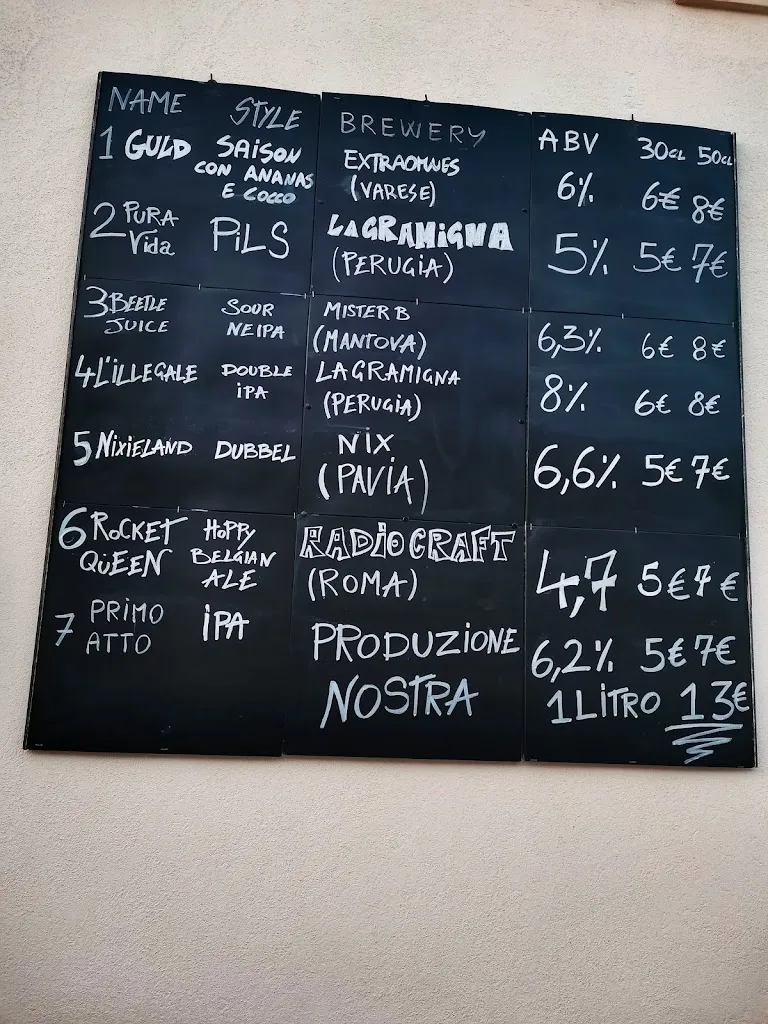 NAME STYLE BREWERY ABV 30CL 50CL
1 GULD SAISON CON ANANAS E COCCO EXTRAOMNES (VARESE) 6% 6€ 8€
2 PURA Vida PiLS LAGRAMIGNA (PERUGiA) 5% 5€ 7€
3 BEETLE JUICE SOUR NEIPA MISTER B (MANTOVA) 6,3% 6€ 8€
4 L'iLLEGALE DOUBLE iPA LAGRAMIGNA (PERUGiA) 8% 6€ 8€
5 NiXiELAND DUBBEL NiX (PAViA) 6,6% 5€ 7€
6 ROCKET QUEEN HOPPY BELGIAN ALE RADiOCRAFT (ROMA) 4,7 5€ 7€
7 PRIMO ATTO iPA PRODUZiONE NOSTRA 6,2% 5€ 7€
1 LiTRO 13€